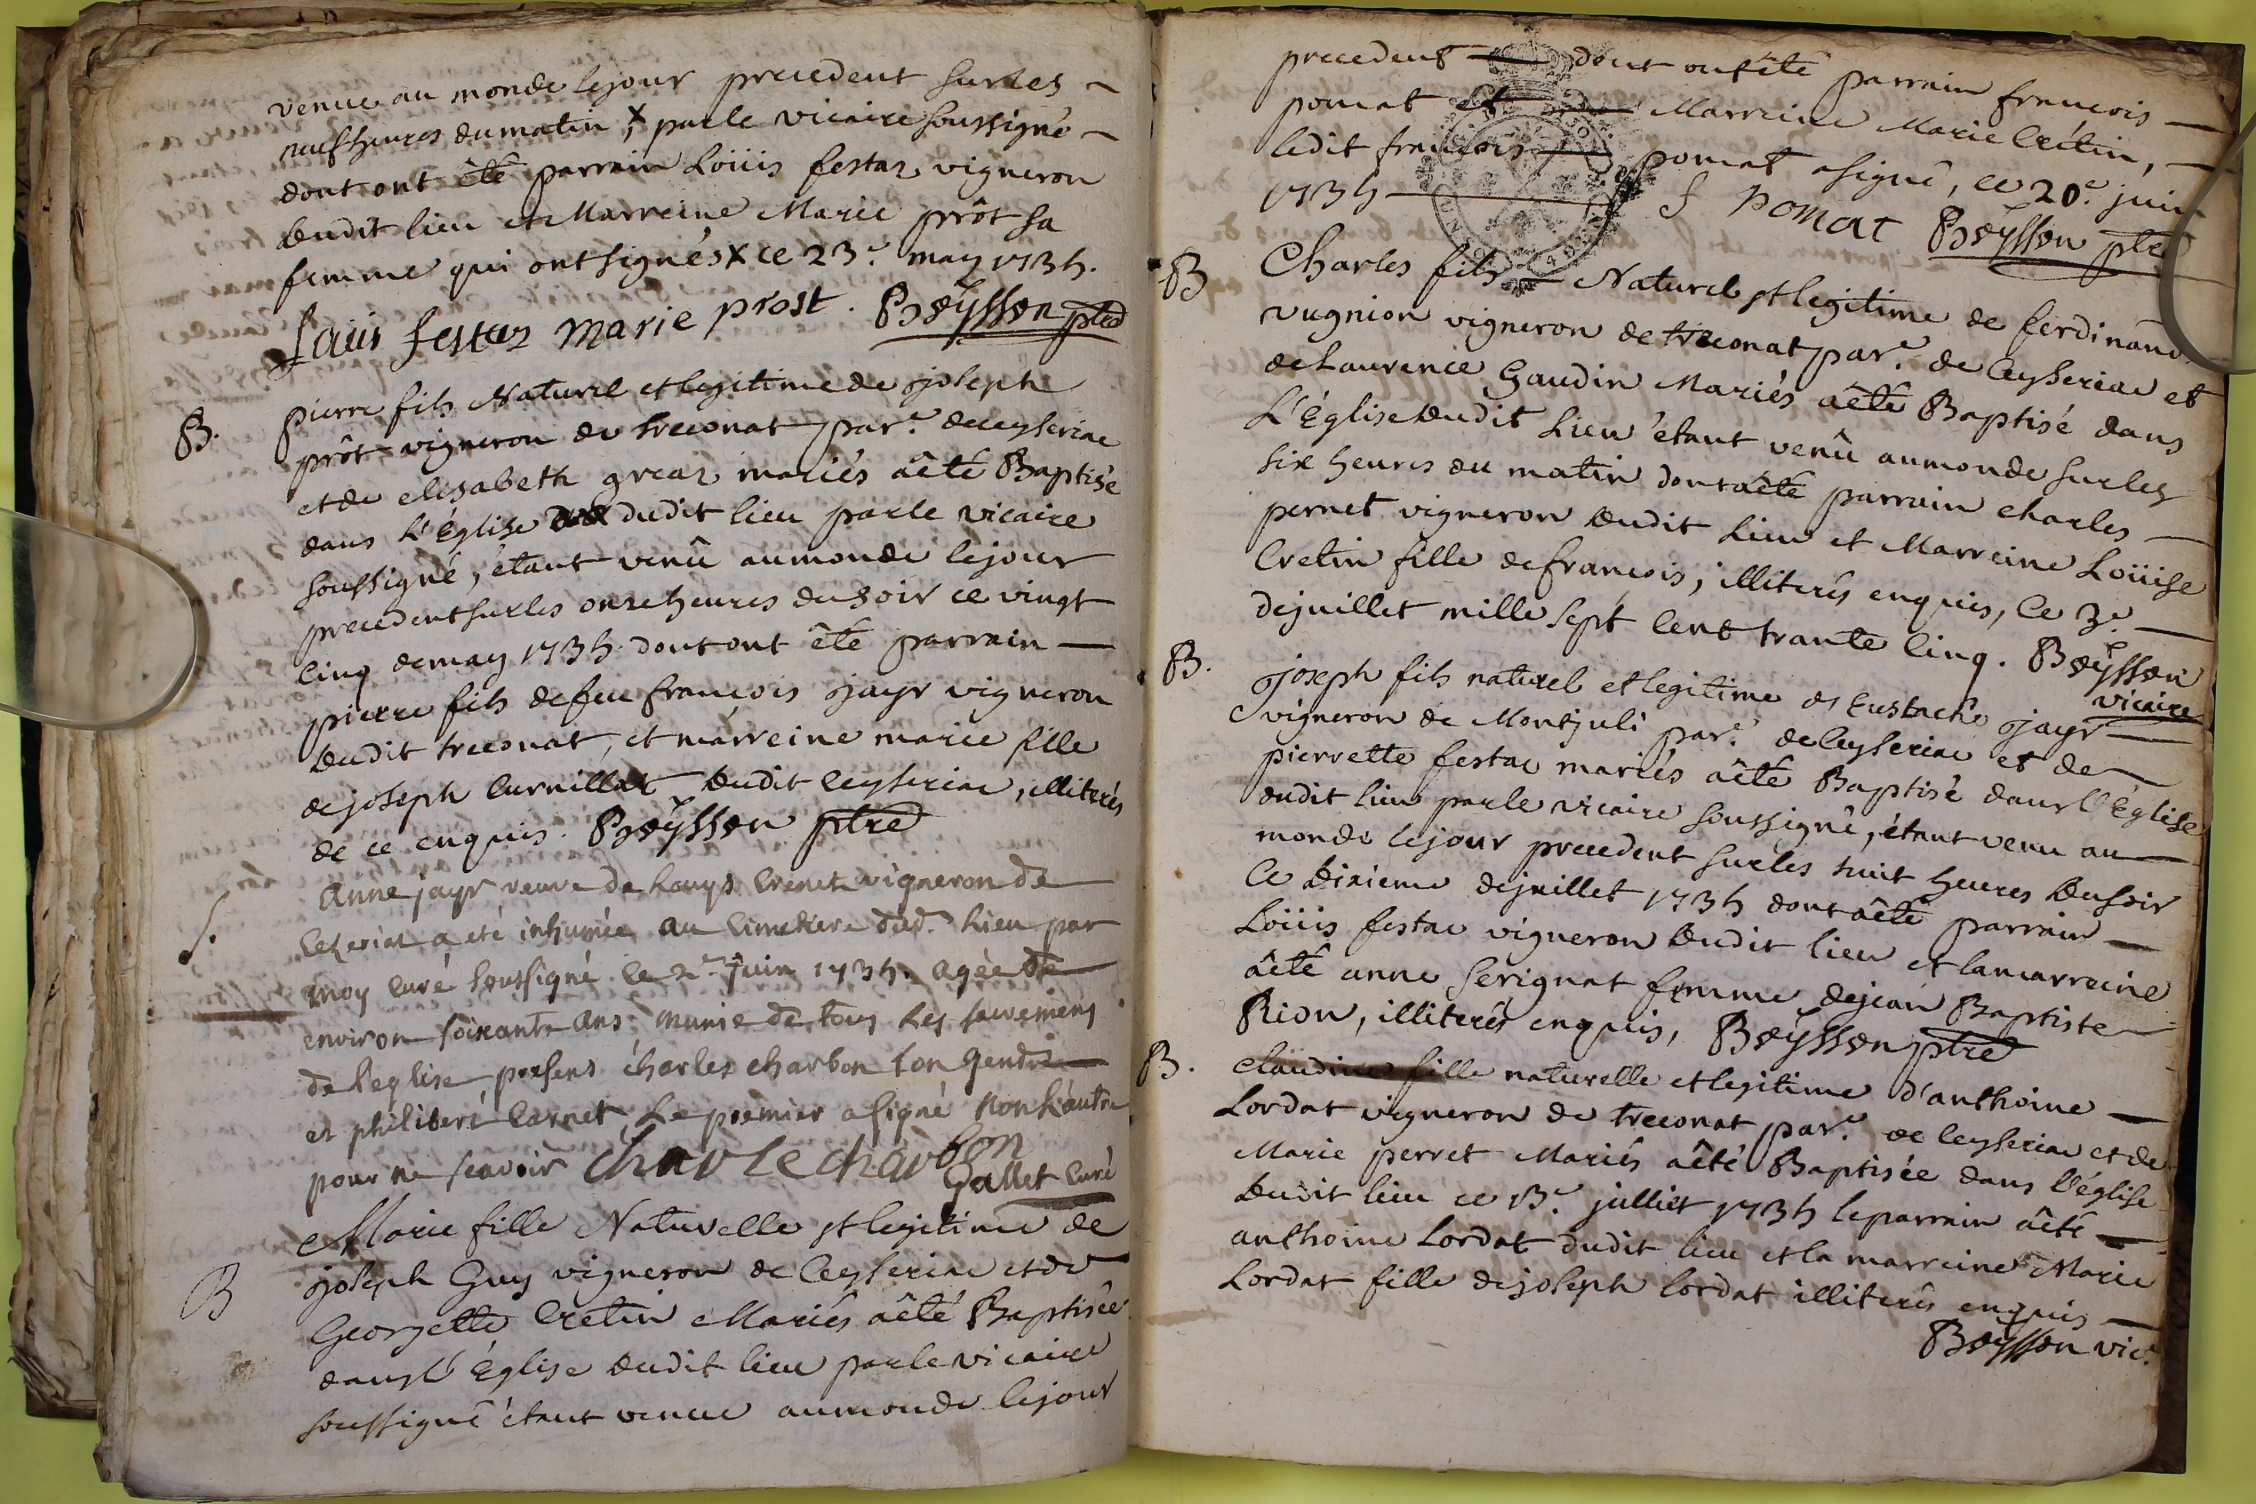 venue au monde le jour precedent sur les
neuf heures du matin, X par le vicaire soussigné
dont ont êté parrain Loüis festaz vigneron
dudit lieu et Marreine Marie prôt sa
femme qui ont signés X ce 23e. may 1735.
Loüis festaz marie prost. Beÿsson ptre
B. pierre fils Naturel et legitime de joseph
prôt vigneron de treconat par.e de ceyseriac
et de elisabeth greaz mariés a êté Baptisé
dans l'Église dudit lieu par le vicaire
soussigné, étant venû au monde le jour
precedent sur les onze heures du soir ce vingt
cinq de may 1735. dont ont êté parrain
pierre fils de feu françois jayr vigneron
dudit treconat, et marreine marie fille
de joseph Curnillat dudit Ceyseriac, illiterés
de ce enquis. Beÿsson ptre
S. Anne jayr veuve de Louys Crenet vigneron de
Ceseriat a eté inhumée au Cimetiere dud. Lieu par
moy Curé soussigné le 2e juin 1735. agée de
environ soixante ans munie de tous les sacremens
de l'eglise presens charles charbon son gendre
et philibert Carnet, Le premier a signé non l'autre
pour ne scavoir Charle charbon
Gallet Curé
B Marie fille Naturelle et legitime de
joseph Guy vigneron de Ceyseriac et de
Georgette Cretin Mariés a êté Baptisée
dans l'Église dudit lieu par le vicaire
soussigné étant venue au monde le jour
precedent dont ont êté parrain françois
pomat et Marreine Marie Crétin,
ledit françois pomat a signé, ce 20e. juin
1735 f pomat Beÿsson ptre
B Charles fils Naturel et legitime de ferdinand
vugnion vigneron de treconat par.e de Ceyseriac et
de Laurence Gaudin Mariés a êté Baptisé dans
L'Église dudit Lieu étant venû au monde sur les
six heures du matin dont a êté parrain charles
pernet vigneron dudit Lieu et Marreine Loüise
Cretin fille de françois, illiterés enquis, Ce 3e.
de juillet mille sept Cent trante Cinq. Beÿsson
vicaire
B. joseph fils naturel et legitime de Eustache jayr
vigneron de Montjuli par.e de Ceyseriac et de
pierrette festac mariés a êté Baptisé dans l'Église
dudit lieu par le vicaire soussigné, étant venu au
monde le jour precedent sur les huit heures du soir
Ce dixieme de juillet 1735 dont a êté parrain
Loüis festac vigneron dudit lieu et la marreine
a êté anne Serignat femme de jean Baptiste
Rion, illiterés enquis, Beÿsson ptre
B. Claudine fille naturelle et legitime d'anthoine
Lordat vigneron de treconat par.e de Ceyseriac et de
Marie perret Mariés a êté Baptisée dans l'église
dudit lieu ce 13e. julliet 1735 le parrain a êté
anthoine Lordat dudit lieu et la marreine Marie
Lordat fille de joseph Lordat illiterés enquis
Beÿsson vic.